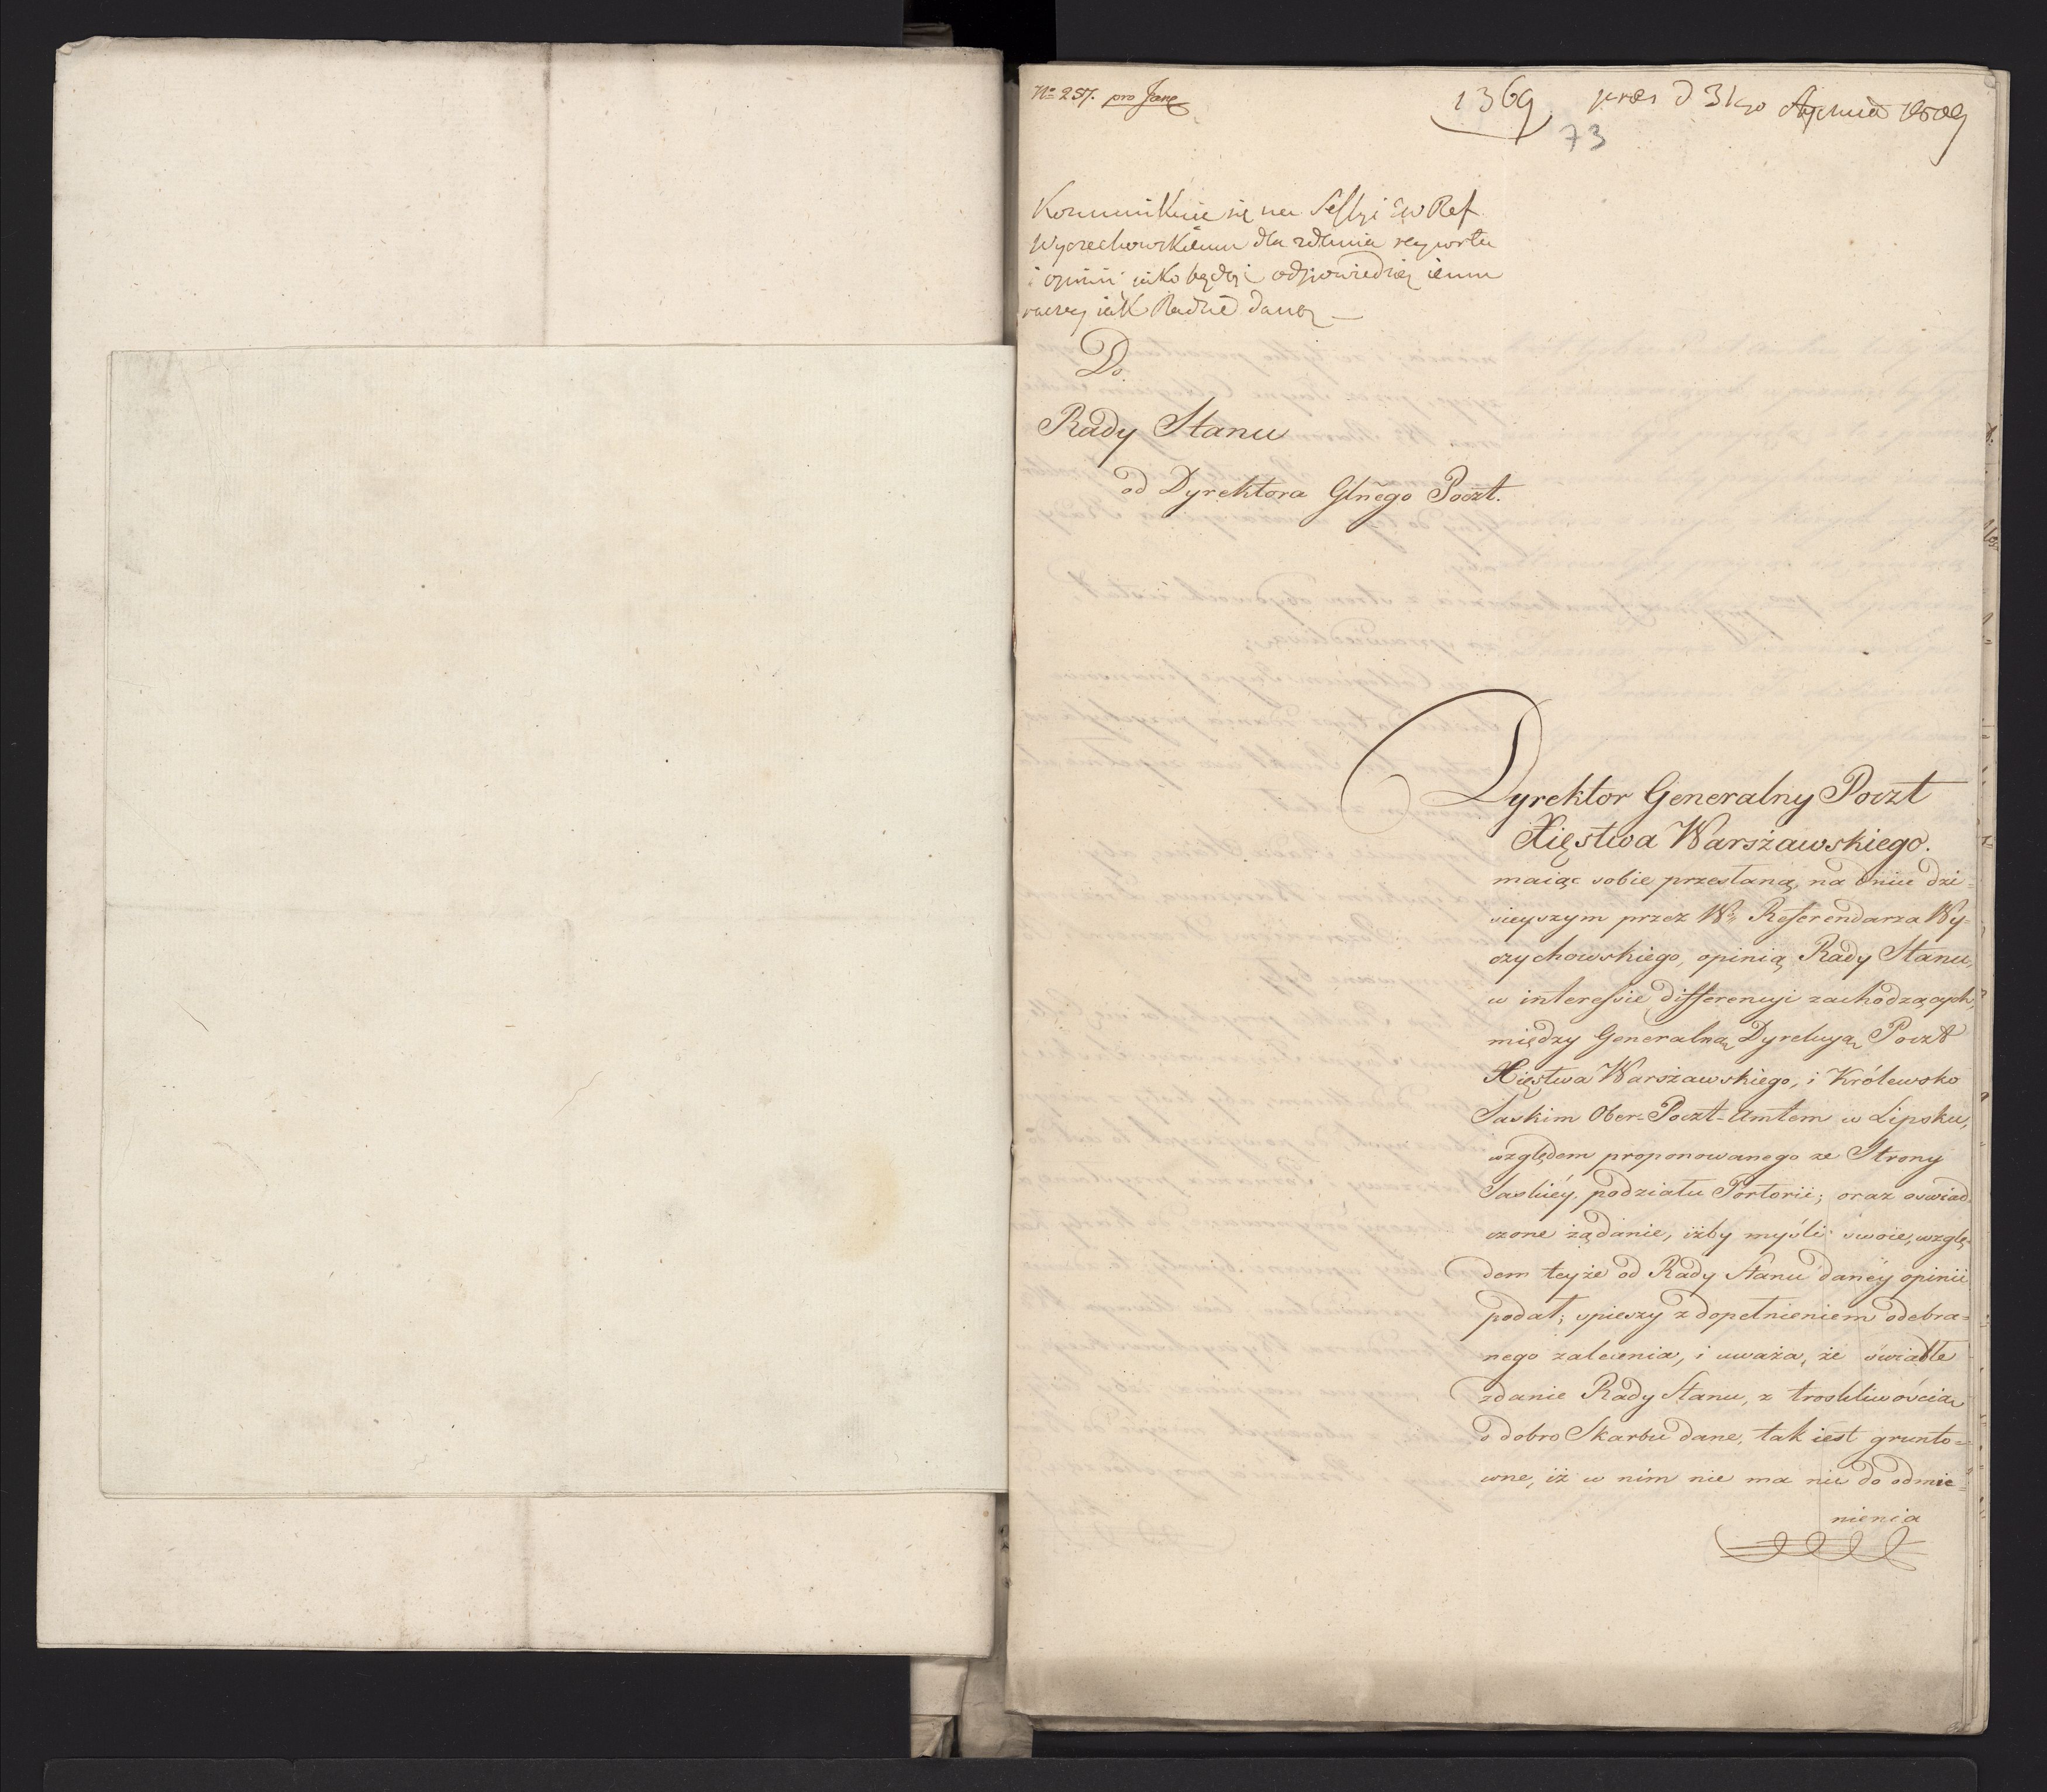 No 257. pro Jane
1369 pres d 31go Stycznia 1809
73
Kommunikuie się na Sessyi JW Ref
Wyczechowskiemu dla zdania reportu
i opinii jako będącj odpowiedzią iemu
raczey iak Radzie daną —
Do
Rady Stanu
od Dyrektora Glnego Poczt.
Dyrektor Generalny Poczt
Xięstwa Warszawskiego.
maiąc sobie przesłaną, na dniu dzi=
sieyszym przez Wo Referendarza Wy=
czychowskiego, opinią Rady Stanu,
w interessie differencyi zachodzących,
między Generalną Dyrekcyą Poczt
Xięstwa Warszawskiego, i Królewsko
Saskim Ober-Poczt-Amtem w Lipsku,
względem proponowanego ze Strony
Saskiéy podziału Portorii; oraz oswiad
czone żądanie, iżby myśli swoie, wzglę=
dem teyże od Rady Stanu danéy opinii
podał; spieszy z dopełnieniem odebra=
nego zalecenia, i uważa, że światłe
zdanie Rady Stanu, z troskliwością
o dobro Skarbu dane, tak iest grunto=
wne, iż w nim nie ma nic do odmie=
nienia